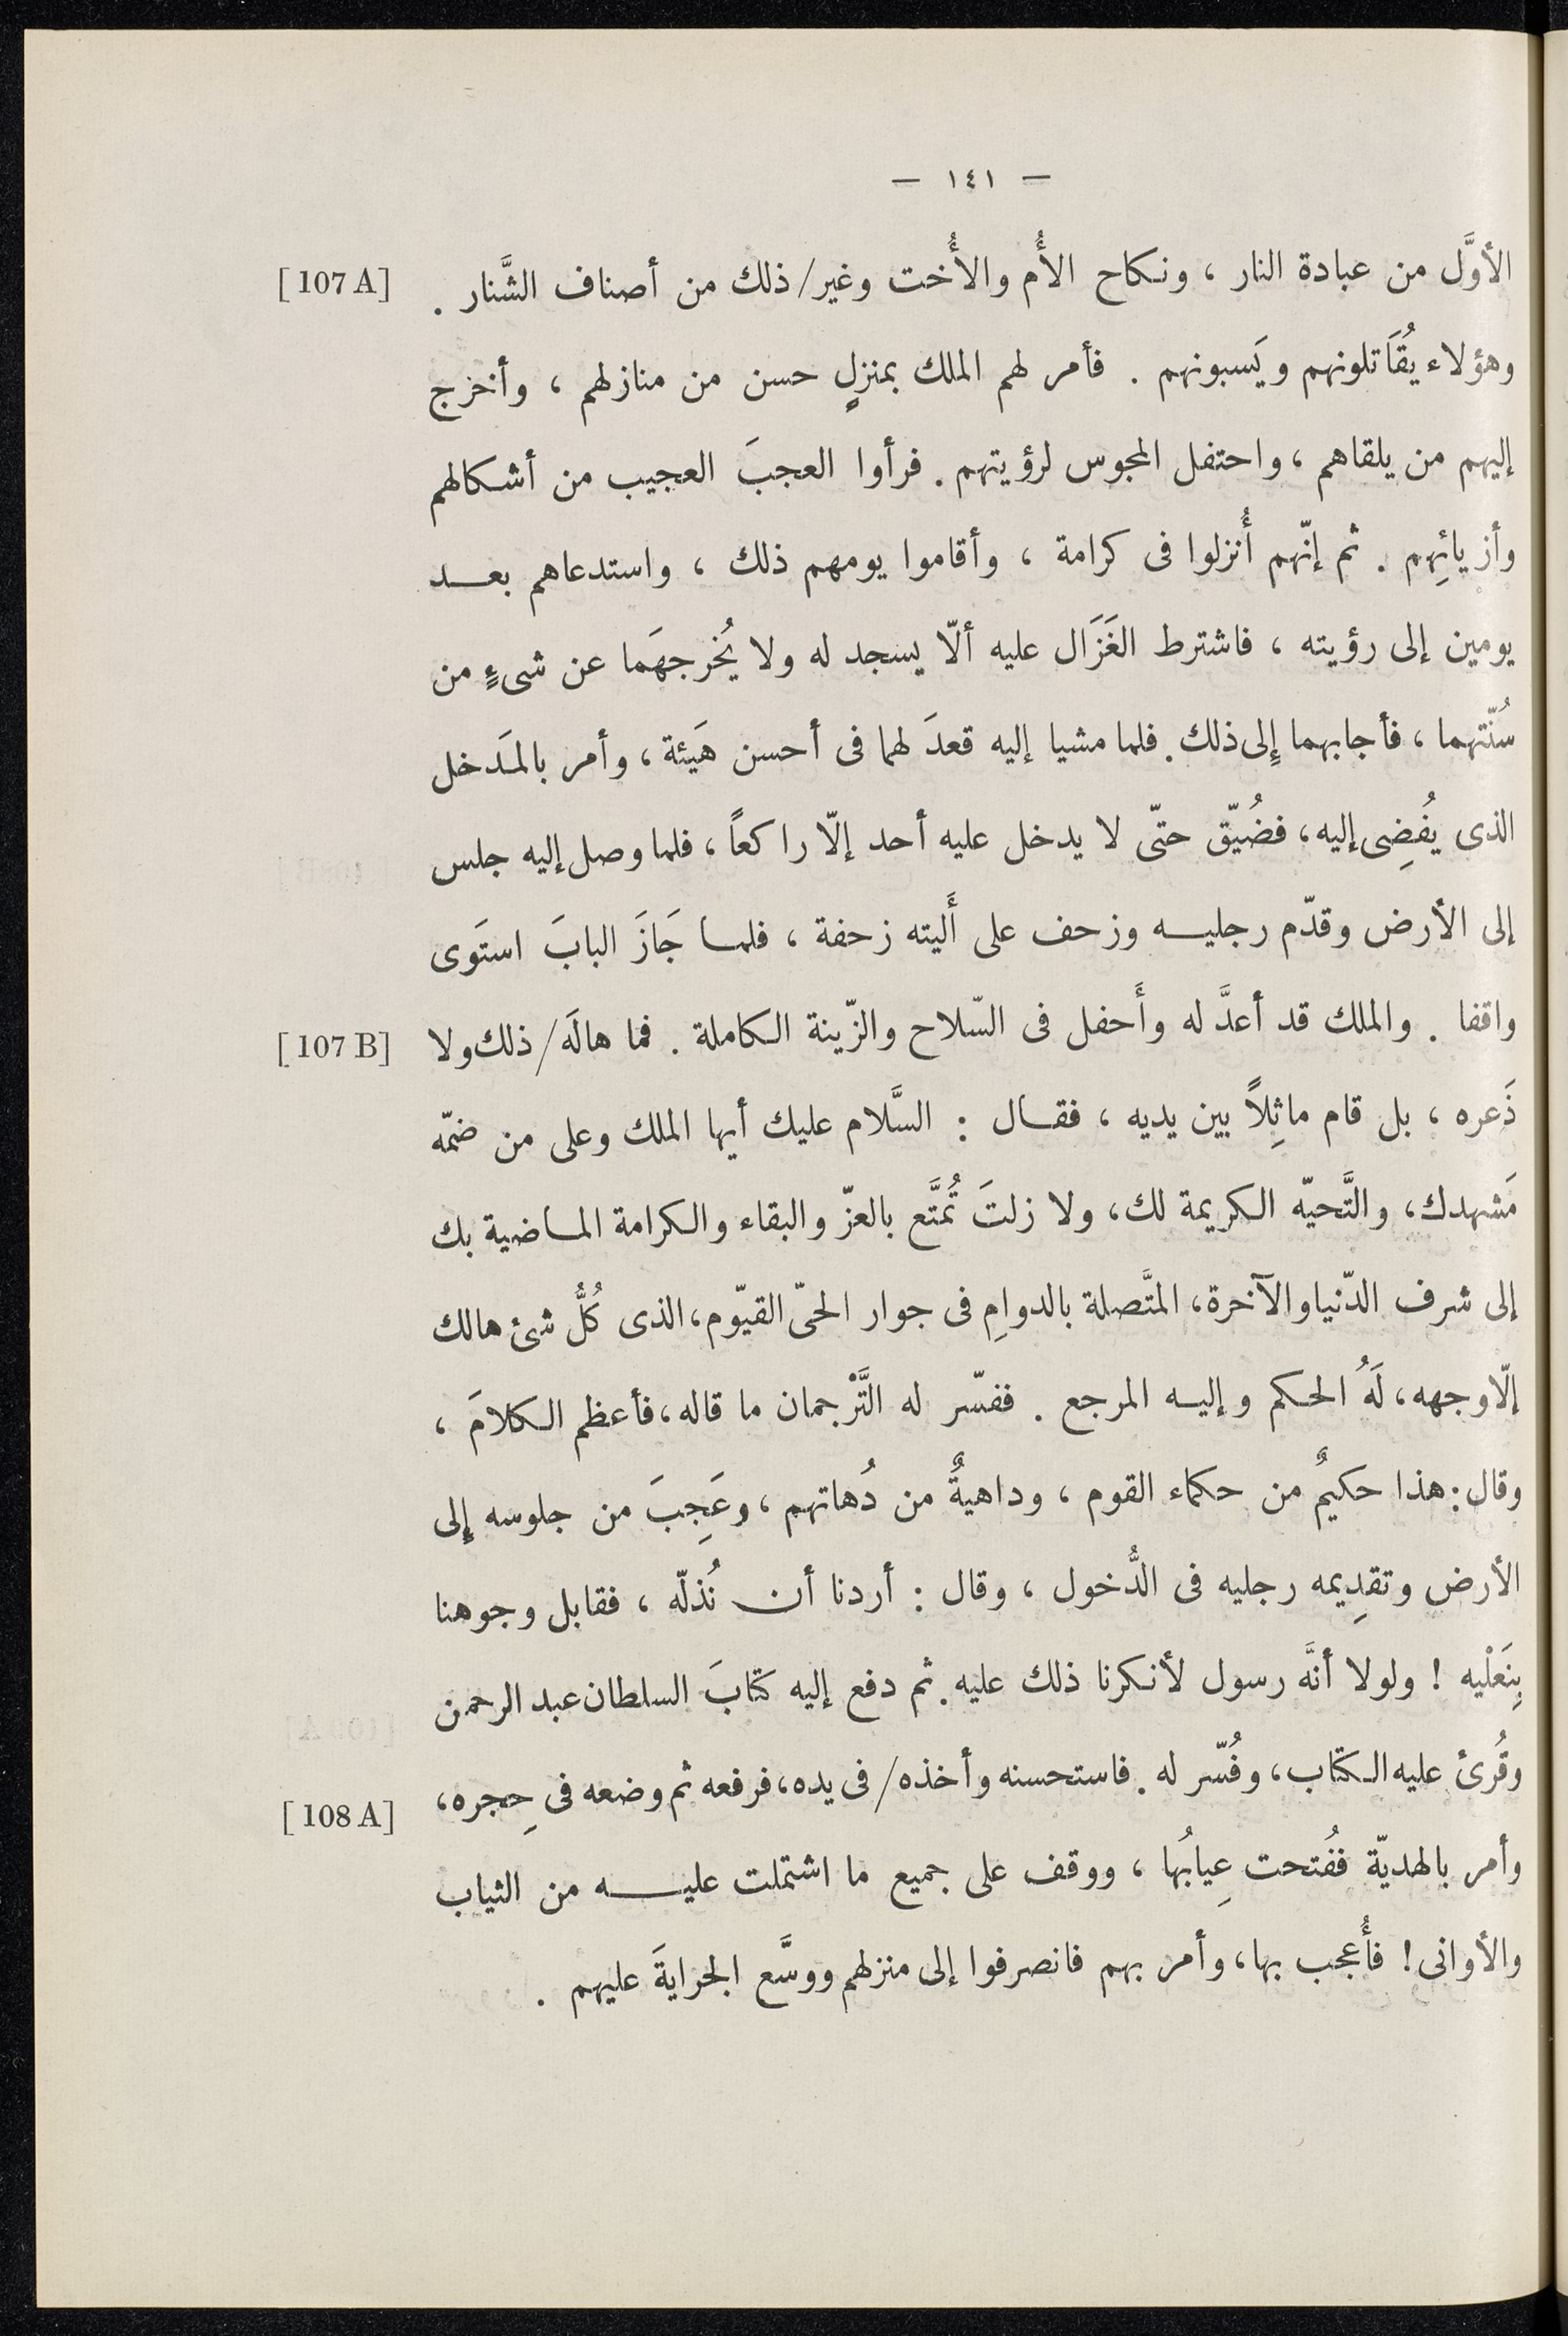 — ١٤١ —
الأوَّل من عبادة النار ، ونكاح الأُم والأُخت وغير/ذلك من أصناف الشَّنار . [107 A]
وهؤلاء يُقَاتلونهم ويَسبونهم . فأمر لهم الملك بمنزلٍ حسن من منازلهم ، وأخرج
إليهم من يلقاهم ، واحتفل المجوس لرؤيتهم . فرأوا العجبَ العجيب من أشكالهم
وأزيائِهم . ثم إنّهم أُنزلوا فى كرامة ، وأقاموا يومهم ذلك ، واستدعاهم بعد
يومين إلى رؤيته ، فاشترط الغَزَال عليه ألّا يسجد له ولا يُخرجهَما عن شىءٍ من
سُنّتهما ، فأجابهما إِلى ذلك . فلما مشيا إليه قعدَ لهما فى أحسن هَيئة ، وأمر بالمَدخل
الذى يُفضِى إليه ، فضُيّق حتّى لا يدخل عليه أحد إلّا راكعاً ، فلما وصل إليه جلس
إلى الأرض وقدّم رجليه وزحف على أَليته زحفة ، فلما جَازَ البابَ استَوى
واقفا . والملك قد أعدَّ له وأَحفل فى السّلاح والزّينة الكاملة . فما هالَه/ذلك ولا [107 B]
ذَعره ، بل قام ماثِلاً بين يديه ، فقال : السَّلام عليك أيها الملك وعلى من ضمّه
مَشهدك ، والتَّحيّه الكريمة لك ، ولا زلتَ تُمتَّع بالعزّ والبقاء والكرامة الماضية بك
إلى شرف الدّنيا والآخرة ، المتَّصلة بالدوامِ فى جوار الحىّ القيّوم ، الذى كُلُّ شئ هالك
إلّا وجهه ، لَهُ الحكم وإليه المرجع . ففسّر له التَّرْجمان ما قاله ، فأعظم الكلامَ ،
وقال : هذا حكيمٌ من حكماء القوم ، وداهيةٌ من دُهاتهم ، وعَجِبَ من جلوسه إلى
الأرض وتقدِيمه رجليه فى الدُّخول ، وقال : أردنا أن نُذلّه ، فقابل وجوهنا
بِنَعْليه ! ولولا أنَّه رسول لأنكرنا ذلك عليه . ثم دفع إليه كتابَ السلطان عبد الرحمن
وقُرئ عليه الكتاب ، وفُسّر له . فاستحسنه وأخذه/فى يده ، فرفعه ثم وضعه فى حِجره ، [108 A]
وأمر بالهديّة ففُتحت عِيابُها ، ووقف على جميع ما اشتملت عليه من الثياب
والأوانى ! فأُعجب بها ، وأمر بهم فانصرفوا إلى منزلهم ووسَّع الجرايةَ عليهم .